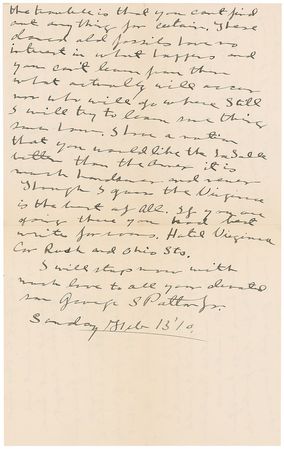 the trouble is that you cant find
out any thing for certain. These
dared old fossils have no
interest in what happens and
you can't learn from them
what actually will occur
nor who will go where Still
I will try to learn some thing
soon how. I have a notion
that you would like the La Salle
better than the it is
much handsomer and newer
Though I guess the Virginia
is the best of all. If you are
going there you had best
write for rooms. Hotel Virginia
Cor Rush and Ohio Sts.
I will stop now with
much love to all your devoted
son George S Patton Jr.
Sunday Feb 13 '10.